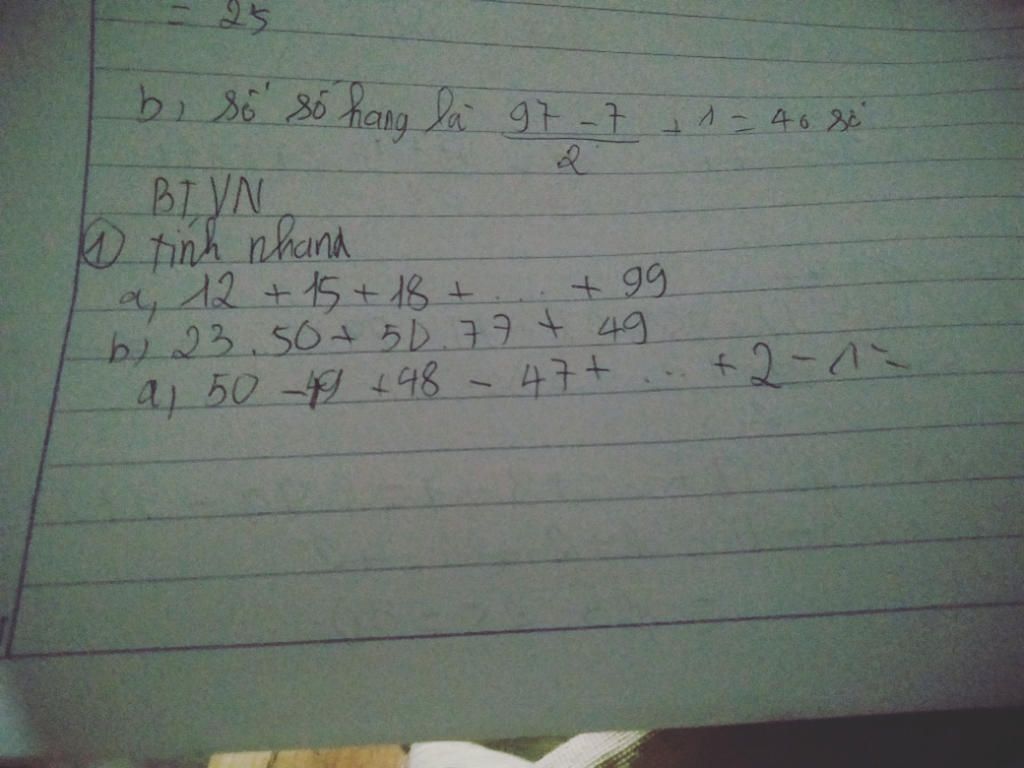 = 25
b, số số hang là 97 - 7 / 2 + 1 = 46 số
BTVN
① tính nhanh
a, 12 + 15 + 18 + ... + 99
b, 23 . 50 + 50 . 77 + 49
a, 50 - 49 + 48 - 47 + ... + 2 - 1 =